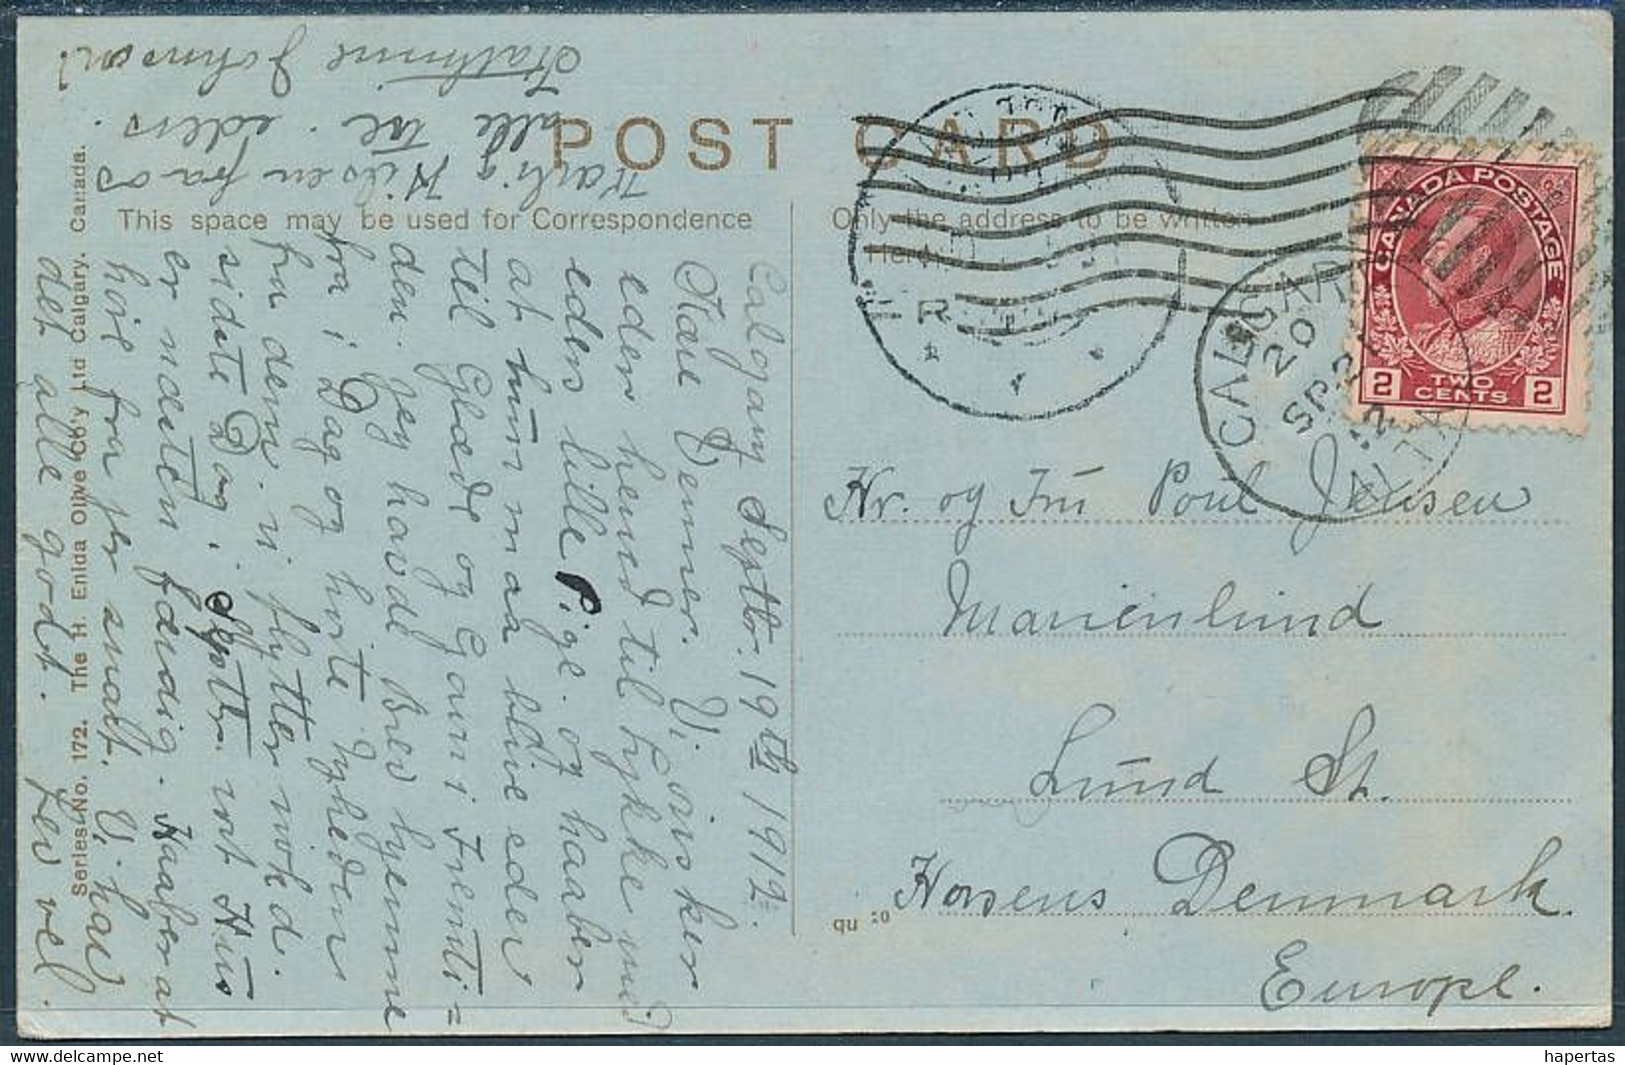 POST CARD
This space may be used for Correspondence
Only the address to be written
Here
CANADA POSTAGE
2 TWO CENTS 2
CALGARY
20
SP 21
12
ALTA
Calgary Septbr. 19th 1912.
Kære Venner. Vi önsker
eder herned til lykke med
eders lille Pige. og haaber
at hun maa blive eder
til Glæde og Gavn i Fremti=
den. jeg havde Brev hjemme
fra i Dag og hörte Nyheden
fra dem. vi flytter
sidste Dag i Septbr. vort Hus
er næsten færdig. Haaber at
höre fra jer snart. Vi har
det alle godt. Lev vel.
Kærlig Hilsen fra os
alle tre. eders.
Kathrine Johnson!
Hr. og Fru Poul Jensen
Marienlund
Lund St.
Horsens Denmark.
Europe.
Series No. 172. The H. Enida Olive Co'y Ltd Calgary. Canada.
hapertas